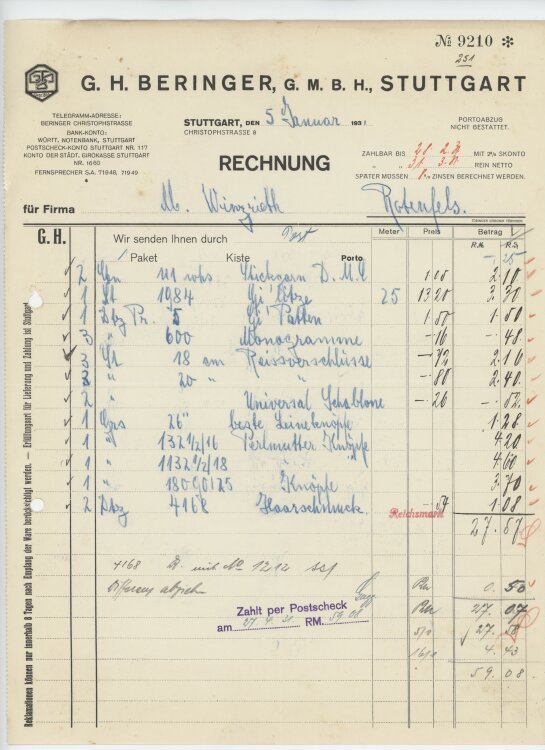 № 9210 ✻
251
G. H. BERINGER, G. M. B. H., STUTTGART
TELEGRAMM-ADRESSE:
BERINGER CHRISTOPHSTRASSE
BANK-KONTO:
WÜRTT. NOTENBANK, STUTTGART
POSTSCHECK-KONTO STUTTGART NR. 117
KONTO DER STÄDT. GIROKASSE STUTTGART
NR. 1660
FERNSPRECHER S.A. 71948, 71949
STUTTGART, DEN 5 Januar 1931
CHRISTOPHSTRASSE 8
PORTOABZUG
NICHT GESTATTET.
RECHNUNG
ZAHLBAR BIS MIT 2% SKONTO
REIN NETTO
SPÄTER MÜSSEN ZINSEN BERECHNET WERDEN.
für Firma M. Rotenfels.
G. H. Wir senden Ihnen durch Post Meter Preis Betrag
1 Paket Kiste Porto RM. -, 25
2 111 rohs Stickgarn D.M.C 1 05 2.10
1 St 1984 Gi'Litze 25 13 20 3.30
1 Dtz Pr. 5 Gi' Patten 1.50 1.50
3 " 600 Monogramme -16 -.48
3 St 18 cm Reissverschlüsse -72 2.10
3 " 20 " " -80 2.40.
2 " Universal Schablone -26 -.52
1 Grs 26" beste Leineknöpfe 1.28
1 " 132 1/2/16 Perlmutter Knöpfe 4.20
1 " 1132 1/2/18 " 4.60
1 " 18090/25 Knöpfe 3.70
2 Dtz 4168 Haarschmuck. -.54 1.08
Reichsmark 27.57
4168 D. mit No 1212
0.50
Zahlt per Postscheck
27.07
am 27.4.31 RM. 59.08
5/1 27.58
16/2 4.43
59.08.
Reklamationen können nur innerhalb 8 Tagen nach Empfang der Ware berücksichtigt werden. — Erfüllungsort für Lieferung und Zahlung ist Stuttgart